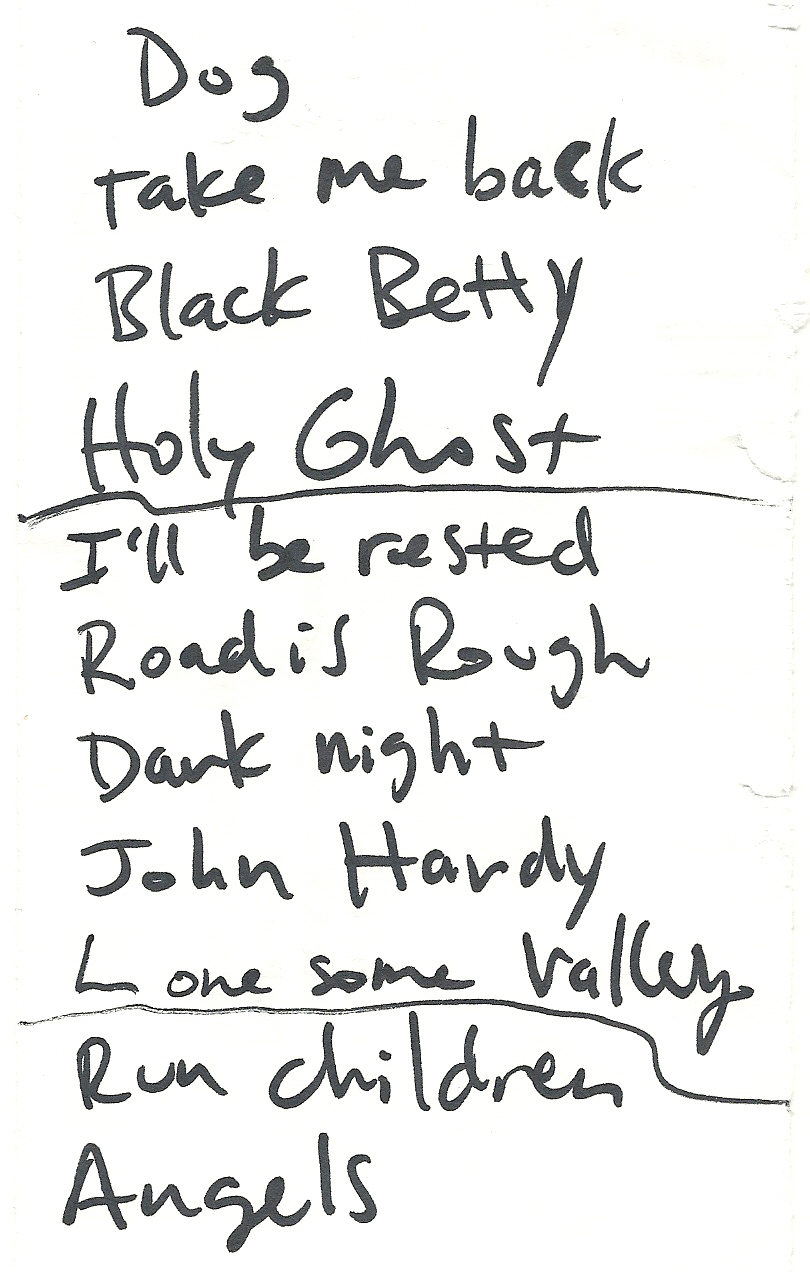 Dog
Take me back
Black Betty
Holy Ghost
I'll be rested
Road is Rough
Dark night
John Hardy
Lonesome Valley
Run children
Angels